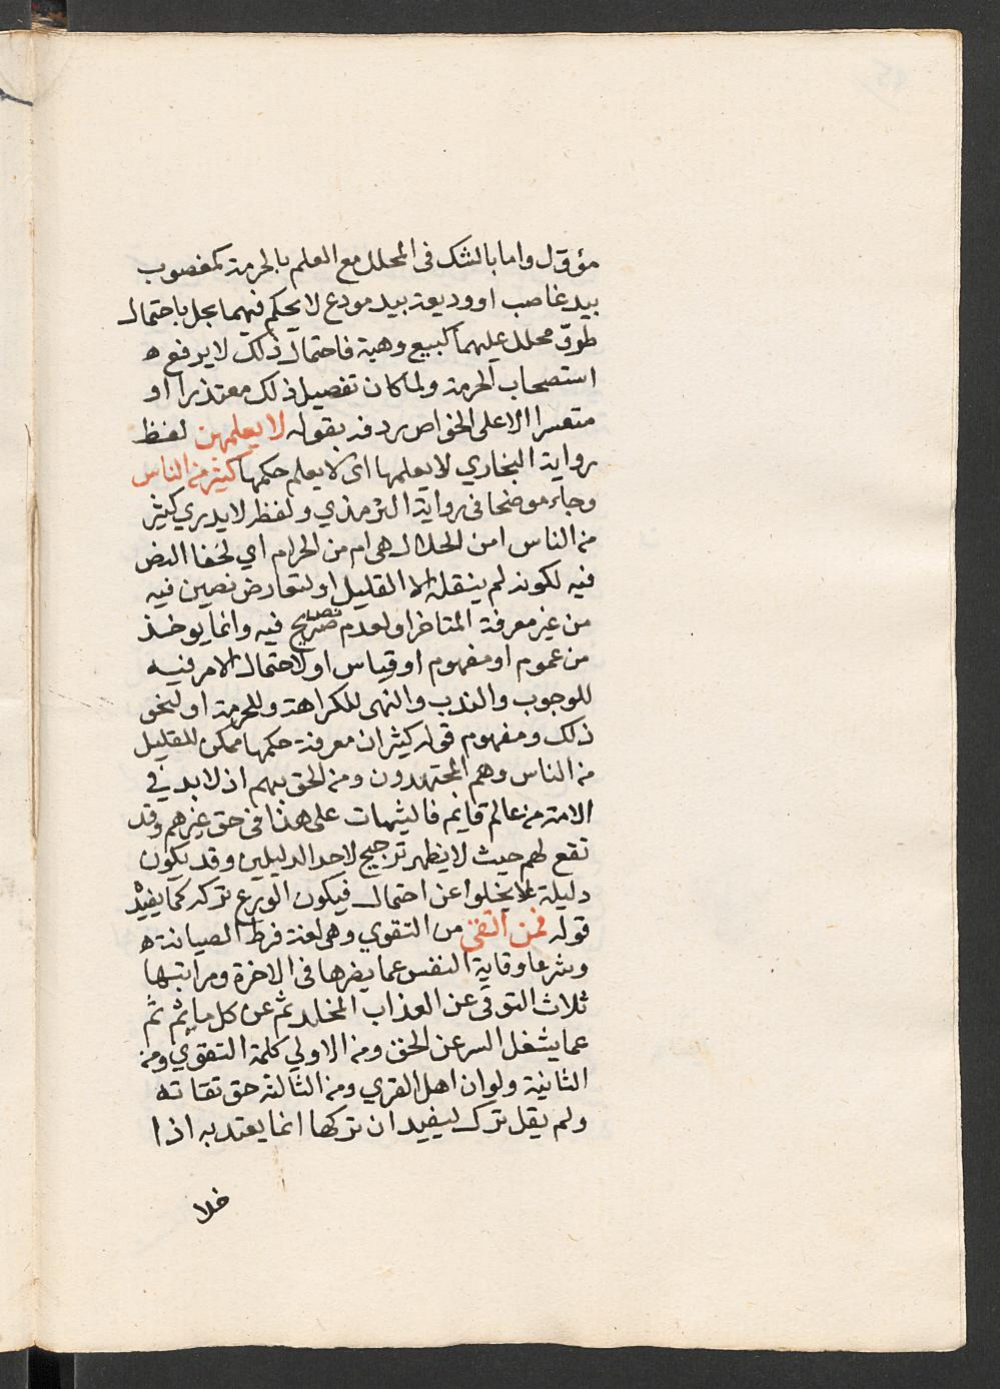 مؤول واما بالشك فى المحلل مع العلم بالحرمة كمغصوب
بيد غاصب او وديعة بيد مودع لا يحكم فيهما بحل باحتمال
طرق محلل عليهما كبيع وهبة فاحتمال ذلك لا يرفع ه
استصحاب الحرمة ولما كان تفصيل ذلك معتذرا او
متعسرا الا على الخواص ردفه بقوله لا يعلمهن لفظ
رواية البخاري لا يعلمها اى لا يعلم حكمها كثير من الناس
وجاء موضحا فى رواية الترمذي ولفظه لا يدري كثير
من الناس امن الحلال هى ام من الحرام اي لخفا النص
فيه لكونه لم ينقله الا القليل او لتعارض نصين فيه
من غير معرفة المتاخر او لعدم نص صريح فيه وانما يوخذ
من عموم او مفهوم او قياس او لاحتمال الامر فيه
للوجوب والندب والنهى للكراهة وللحرمة او لنحو
ذلك ومفهوم قوله كثير ان معرفة حكمها ممكن للقليل
من الناس وهم المجتهدون ومن الحق بهم اذ لا بد في
الامة من عالم قايم فالشبهات على هذا فى حق غيرهم وقد
تقع لهم حيث لا يظهر ترجيح لاحد الدليلين وقد يكون
دليله لا يخلوا عن احتمال فيكون الورع تركه كما يفيد
قوله فمن اتقى من التقوي وهى لغة فرط الصيانة ه
وشرعا وقاية النفس عما يضرها فى الاخرة ومراتبها
ثلاث التوقى عن العذاب المخلد ثم عن كل ماثم ثم
عما يشغل السر عن الحق ومن الاولي كلمة التقوي ومن
الثانية ولو ان اهل القري ومن الثالثة حق تقاته
ولم يقل ترك ليفيد ان تركها انما يعتد به اذا
خلا